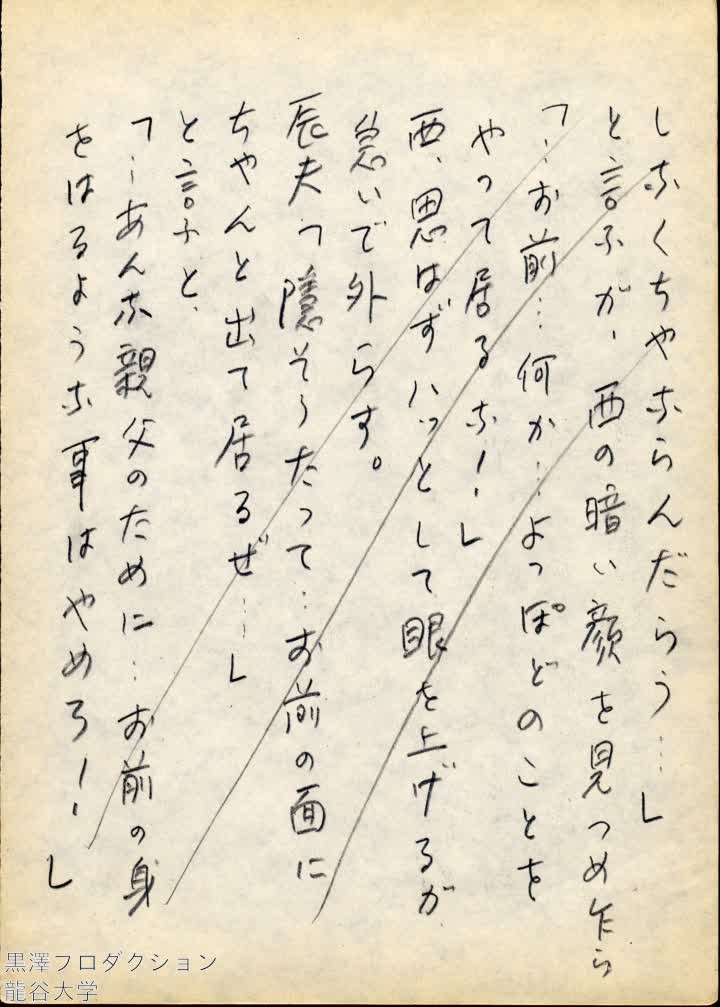 しなくちやならんだらう…」
と言ふが、西の暗い顔を見つめ乍ら
「…お前…何か…よっぽどのことを
やって居るな！」
西、思はずハッとして眼を上げるが、
急いで外らす。
辰夫「隠そうたって…お前の面に
ちやんと出て居るぜ…」
と言ふと、
「…あんな親父のために…お前の身
をはるような事はやめろ！」
黒澤プロダクション
龍谷大学